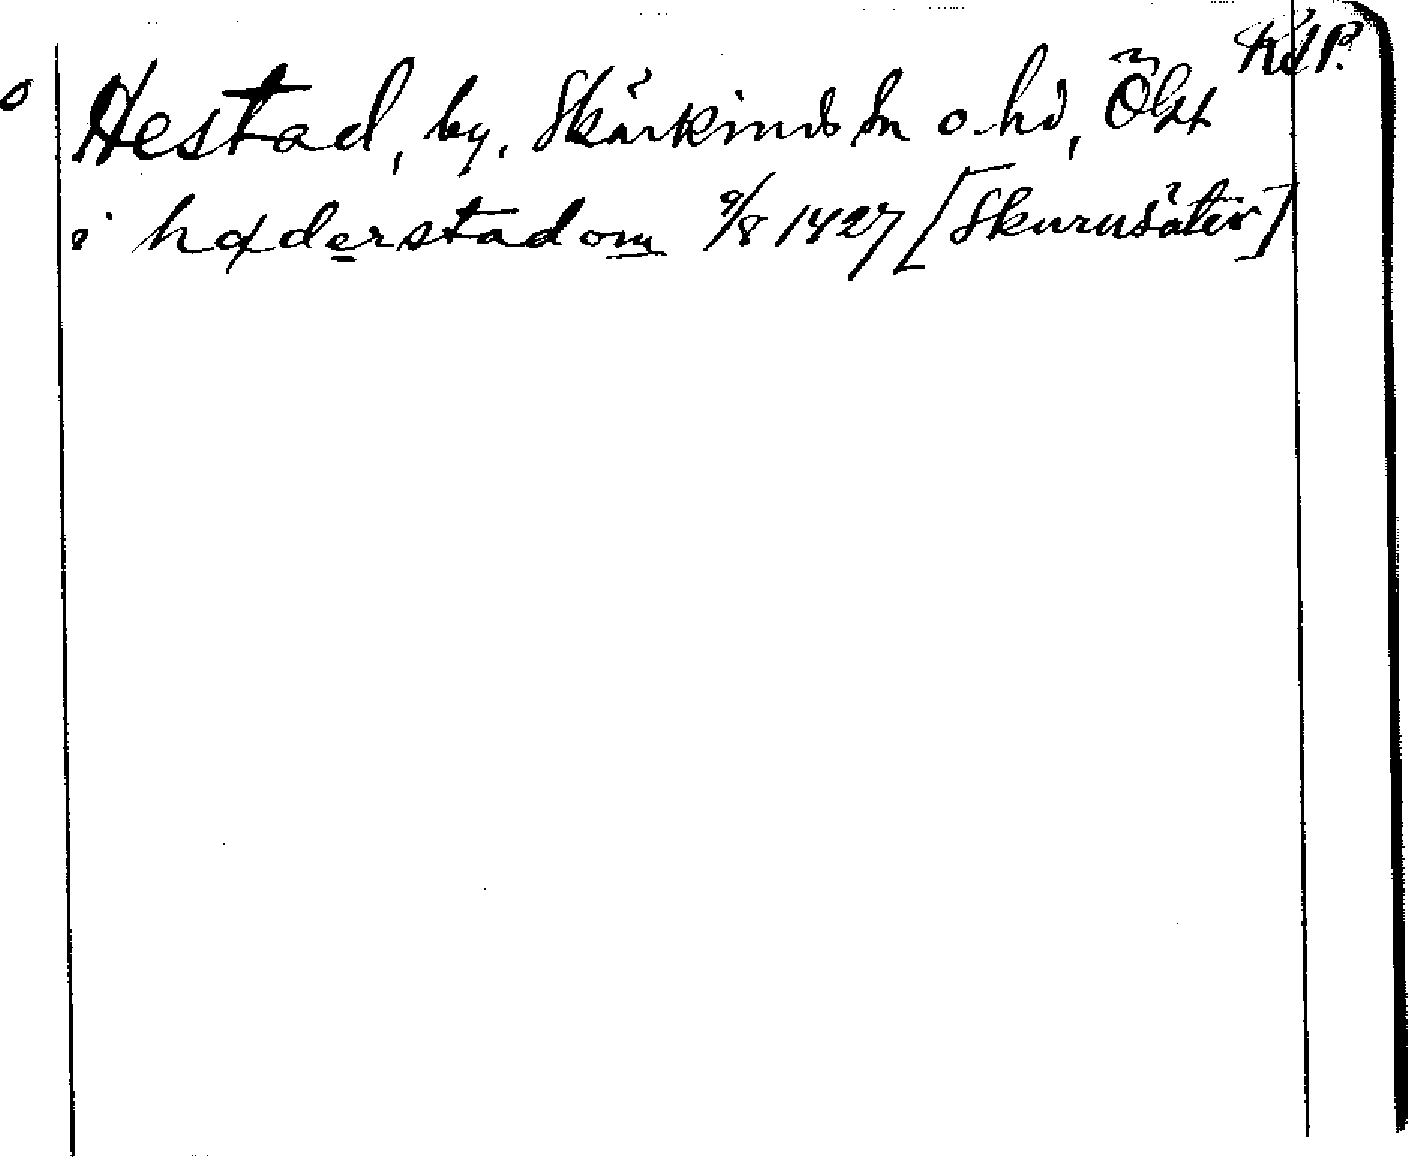 Rd P.
o Hestad, by, Skärkinds sn o. hd, Ögl
i hæderstadom 9/8 1427 [Skurusäter]